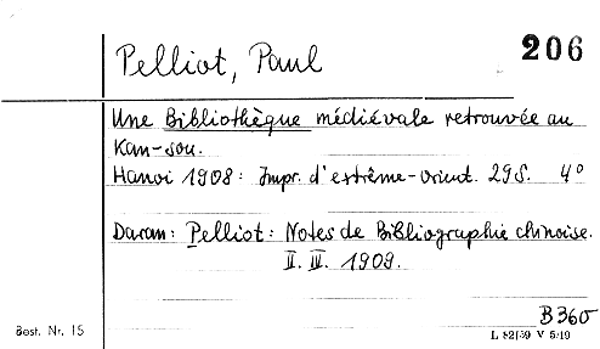 Pelliot, Paul 206
Une Bibliothèque médiévale retrouvée au
Kan-sou.
Hanoi 1908: Impr. d'extrême-orient. 29 S. 4°
Daran: Pelliot: Notes de Bibliographie chinoise.
II. IV. 1909.
B 360
Best. Nr. 15 L 82/59 V 5/19